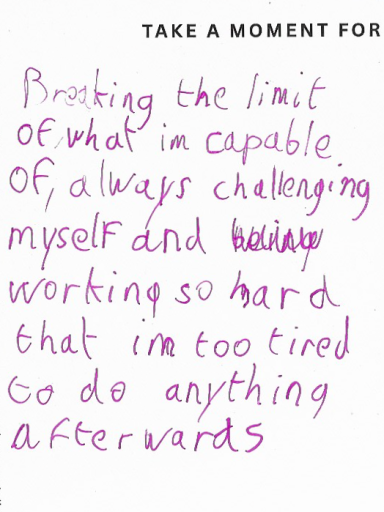 TAKE A MOMENT FOR
Breaking the limit
of what im capable
of, always challenging
myself and
working so hard
that im too tired
to do anything
afterwards